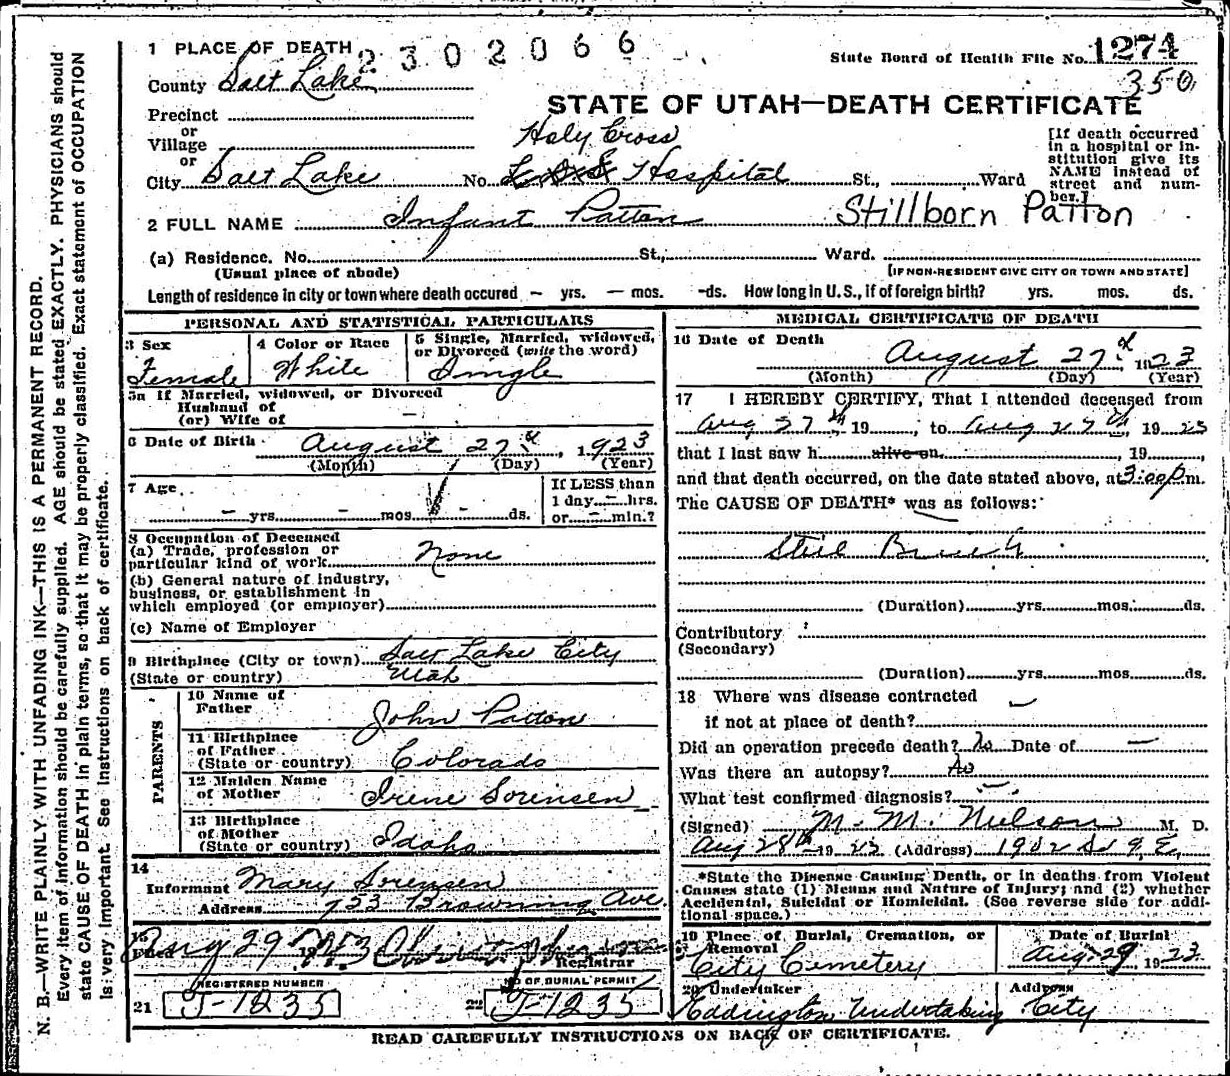 1 PLACE OF DEATH 2302066
State Board of Health File No. 1274
County Salt Lake
350
STATE OF UTAH—DEATH CERTIFICATE
Precinct
or
Village
or
Holy Cross
City Salt Lake No. Hospital St., Ward
[If death occurred
in a hospital or in-
stitution give its
NAME instead of
street and num-
ber.]
2 FULL NAME Infant Patton Stillborn Patton
(a) Residence. No. St., Ward.
(Usual place of abode) [IF NON-RESIDENT GIVE CITY OR TOWN AND STATE]
Length of residence in city or town where death occured – yrs. – mos. -ds. How long in U. S., if of foreign birth? yrs. mos. ds.
PERSONAL AND STATISTICAL PARTICULARS
3 Sex
Female
4 Color or Race
White
5 Single, Married, widowed,
or Divorced (write the word)
Single
5a If Married, widowed, or Divorced
Husband of
(or) Wife of –
6 Date of Birth August 27, 1923
(Month) (Day) (Year)
7 Age
– yrs. – mos. ds.
If LESS than
1 day – hrs.
or – min.?
8 Occupation of Deceased
(a) Trade, profession or
particular kind of work None
(b) General nature of industry,
business, or establishment in
which employed (or employer)
(c) Name of Employer
9 Birthplace (City or town) Salt Lake City
(State or country) Utah
PARENTS
10 Name of
Father John Patton
11 Birthplace
of Father
(State or country) Colorado
12 Maiden Name
of Mother Irene Sorensen
13 Birthplace
of Mother
(State or country) Idaho
14
Informant Mary Sorensen
Address 733 Browning Ave.
15
Aug 29
Registrar
REGISTERED NUMBER
21 J-1235
NO OF BURIAL PERMIT
22 J-1235
MEDICAL CERTIFICATE OF DEATH
16 Date of Death
August 27 1923
(Month) (Day) (Year)
17 I HEREBY CERTIFY, That I attended deceased from
Aug 27th, 19 , to Aug 27th, 19 23
that I last saw h alive on , 19 ,
and that death occurred, on the date stated above, at 3:00 p.m.
The CAUSE OF DEATH* was as follows:
Still Birth
(Duration) yrs. mos. ds.
Contributory
(Secondary)
(Duration) yrs. mos. ds.
18 Where was disease contracted
if not at place of death?
Did an operation precede death? No Date of –
Was there an autopsy? No
What test confirmed diagnosis? –
(Signed) M. M. Nielson M. D.
Aug 28th 19 23 (Address) 1902 So 9 E.
*State the Disease Causing Death, or in deaths from Violent
Causes state (1) Means and Nature of Injury; and (2) whether
Accidental, Suicidal or Homicidal. (See reverse side for addi-
tional space.)
19 Place of Burial, Cremation, or
Removal
City Cemetery
Date of Burial
Aug. 29, 1923
20 Undertaker
Eddington Undertaking
Address
City
READ CAREFULLY INSTRUCTIONS ON BACK OF CERTIFICATE.
N. B.—WRITE PLAINLY WITH UNFADING INK—THIS IS A PERMANENT RECORD.
Every item of information should be carefully supplied. AGE should be stated EXACTLY. PHYSICIANS should
state CAUSE OF DEATH in plain terms, so that it may be properly classified. Exact statement of OCCUPATION
is very important. See instructions on back of certificate.